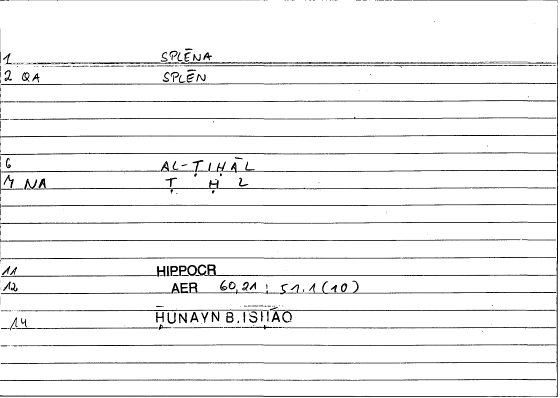 1 SPLĒNA
2 QA SPLĒN
6 AL-ṬIḤĀL
7 NA Ṭ Ḥ L
11 HIPPOCR
12 AER 60,21 ; 51.1(10)
14 ḤUNAYN B. ISḤĀQ